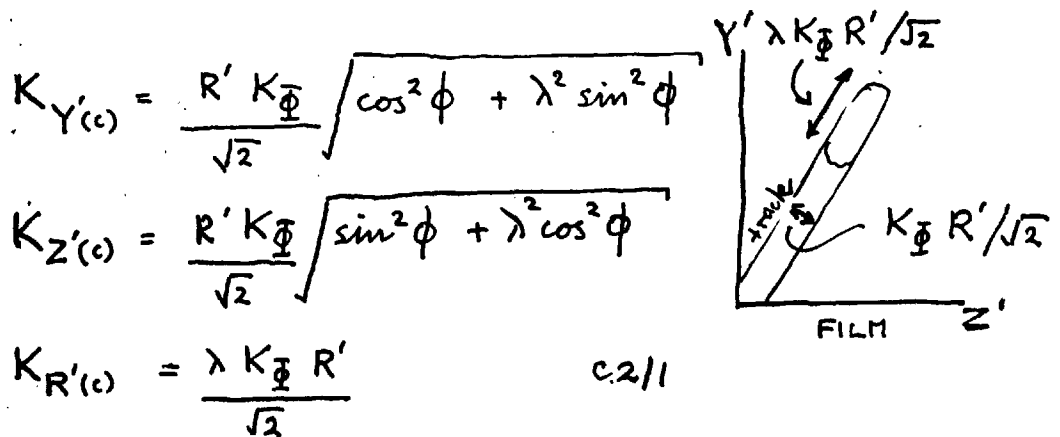 K_Y'(c) = R' K_Φ / √2 √(cos²ϕ + λ² sin²ϕ)
K_Z'(c) = R' K_Φ / √2 √(sin²ϕ + λ² cos²ϕ)
K_R'(c) = λ K_Φ R' / √2
c.2/1
Y'
λ K_Φ R' / √2
track
K_Φ R' / √2
Z'
FILM